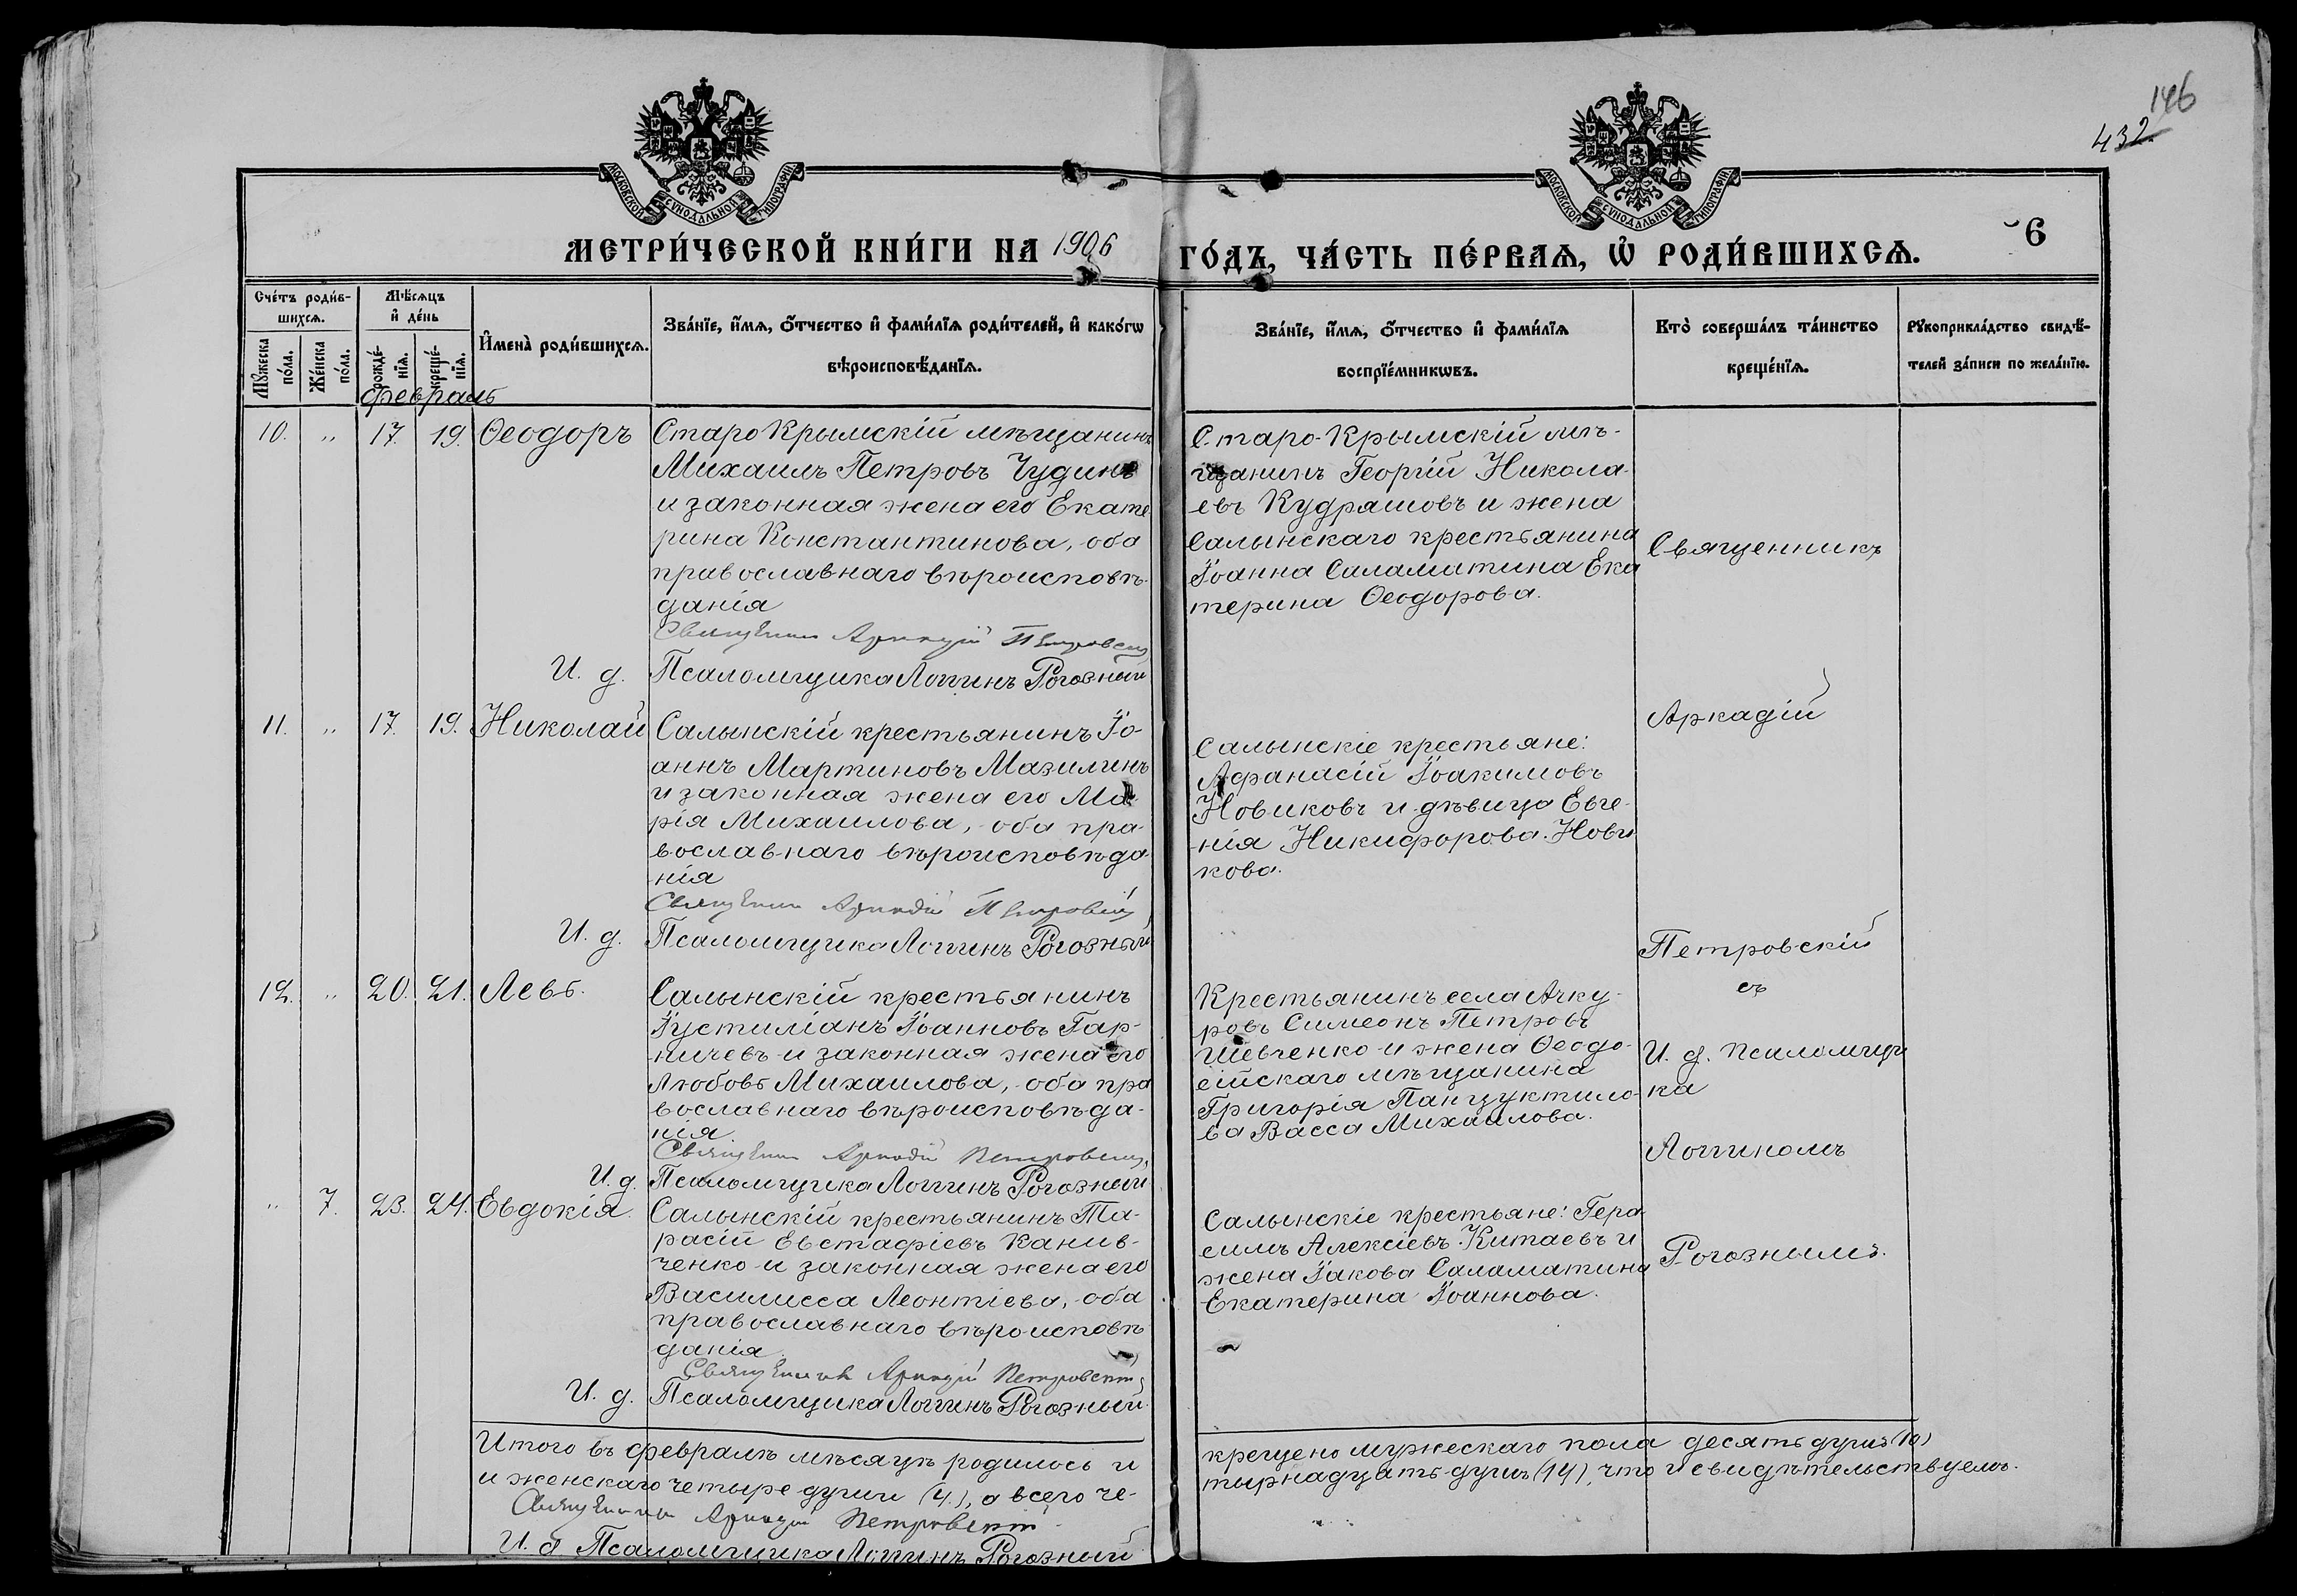 146
432
МОСКОВСКОЙ СѴНОДАЛЬНОЙ ТИПОГРАФІИ
МОСКОВСКОЙ СѴНОДАЛЬНОЙ ТИПОГРАФІИ
МЕТРИ́ЧЕСКОЙ КНИ́ГИ НА 1906 ГО́ДЪ, ЧА́СТЬ ПЕ́РВАѦ, Ѽ РОДИ́ВШИХСѦ.
6
Сче́тъ роди́в-
шихсѧ.
Мѣ́сѧцъ
и҆ де́нь
И҆мена̀ роди́вшихсѧ.
Зва́нїе, и҆́мѧ, ѻ҆́тчество и҆ фами́лїѧ роди́телей, и҆ како́гѡ
вѣроисповѣ́данїѧ.
Зва́нїе, и҆́мѧ, ѻ҆́тчество и҆ фами́лїѧ
воспрїе́мникѡвъ.
Кто̀ соверша́лъ та́инство
креще́нїѧ.
Рꙋкоприкла́дство свидѣ́-
телей за́писи по жела́нїю.
Мꙋ́жеска
по́ла.
Же́нска
по́ла.
рожде́-
нїѧ.
креще́-
нїѧ.
Февраль
10. " 17. 19. Ѳеодоръ
Старо Крымскій мѣщанинъ
Михаилъ Петровъ Чудинъ
и законная жена его Екате
рина Константинова, оба
православнаго вѣроисповѣ-
данія
Священникъ Аркадій Петровскій
И. д. Псаломщика Логгинъ Рогозный
Старо-Крымскій мѣ-
щанинъ Георгій Никола-
евъ Кудряшовъ и жена
Салынскаго крестьянина
Іоанна Саламатина Ека
терина Ѳеодорова.
Священникъ
11. " 17. 19. Николай
Салынскій крестьянинъ Іо-
аннъ Мартиновъ Мазилинъ
и законная жена его Ма-
рія Михаилова, оба пра-
вославнаго вѣроисповѣда
нія
Священникъ Аркадій Петровскій
И. д. Псаломщика Логгинъ Рогозный
Салынскіе крестьяне:
Афанасій Іоакимовъ
Новиковъ и дѣвица Евге-
нія Никифорова Нови
кова.
Аркадій
Петровскій
12. " 20. 21. Левъ.
Салынскій крестьянинъ
Іустиліанъ Іоанновъ Гар-
ничевъ и законная жена его
Любовь Михаилова, оба пра
вославнаго вѣроисповѣда-
нія.
Священникъ Аркадій Петровскій
И. д. Псаломщика Логгинъ Рогозный
Крестьянинъ села Ачку-
ровъ Симеонъ Петровъ
Шевченко и жена Ѳеодо-
сійскаго мѣщанина
Григорія Панцуктило-
ва Васса Михаилова.
съ
И. д. Псаломщи
ка
Логгиномъ
" 7. 23. 24. Евдокія.
Салынскій крестьянинъ Та-
расій Евстафіевъ Канив-
ченко и законная жена его
Василисса Леонтіева, оба
православнаго вѣроисповѣ
данія
Священникъ Аркадій Петровскій
И. д. Псаломщика Логгинъ Рогозный
Салынскіе крестьяне: Гера
симъ Алексіевъ Китаевъ и
жена Іакова Саламатина
Екатерина Іоаннова.
Рогознымъ.
Итого въ февралѣ мѣсяцѣ родилось и крещено мужескаго пола десять душъ (10)
и женскаго четыре души (4.), а всего че- тырнадцать душъ (14), что и свидѣтельствуемъ.
Священникъ Аркадій Петровскій
И. д. Псаломщика Логгинъ Рогозный